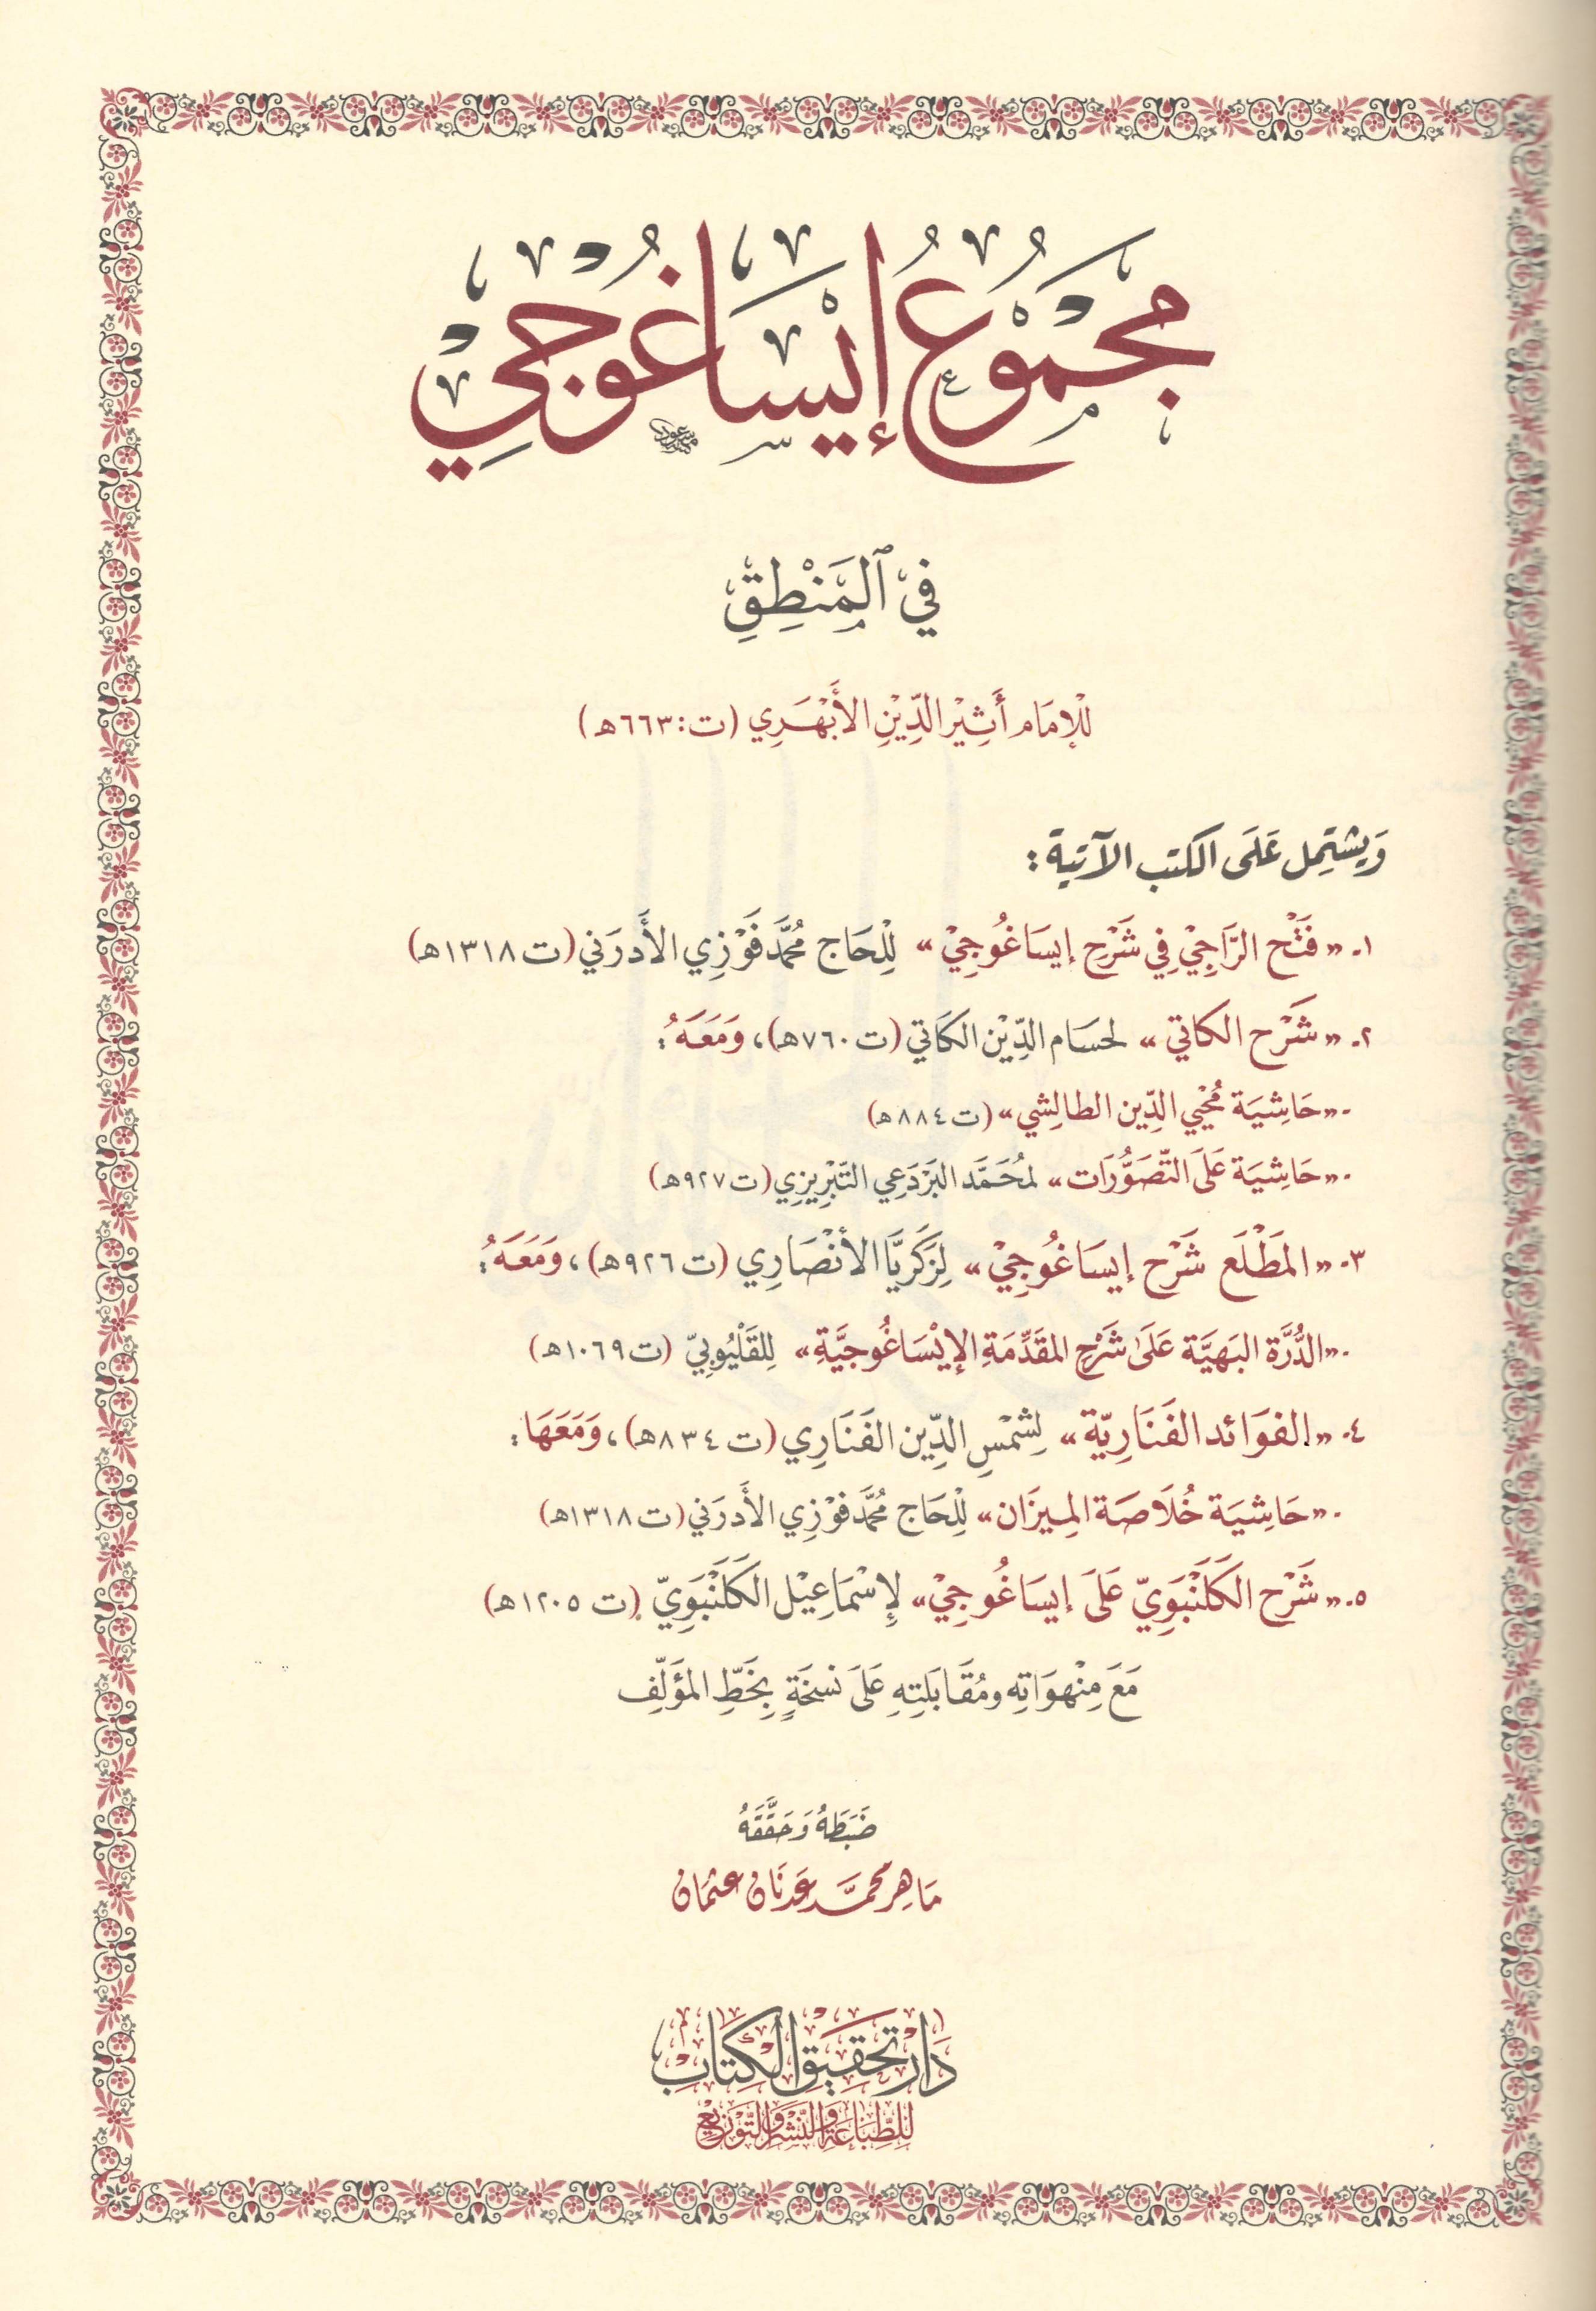 مَجْمُوعُ إِيسَاغُوجِي
فِي ٱلْمَنْطِقِ
لِلْإِمَام أَثِيْر الدِّيْنِ الأَبْهَرِي (ت: ٦٦٣هـ)
وَيشتَمِل عَلَى الكتب الآتية:
١- «فَتْح الرَّاجِيْ فِي شَرْحِ إيسَاغُوجِيْ» لِلْحَاج مُحمَّد فَوْزِي الأَدرَني (ت ١٣١٨هـ)
٢- «شَرْح الكاتي» لحسَام الدِّيْن الكَاتي (ت ٧٦٠هـ)، وَمَعَهُ:
- «حَاشِيَة مُحْيِي الدِّين الطالِشي» (ت ٨٨٤هـ)
- «حَاشِيَة عَلَى التَّصَوُّرَات» لمُحَمَّد البَرْدَعِي التَّبْرِيزِي (ت ٩٢٧هـ)
٣- «المَطْلَع شَرْح إيسَاغُوجِيْ» لِزَكَرِيَّا الأَنْصَارِي (ت ٩٢٦هـ)، وَمَعَهُ:
- «الدُّرَّة البَهيَّة عَلَى شَرْحِ المقَدِّمَةِ الإيْسَاغُوجيَّةِ» لِلقَلْيُوبِيّ (ت ١٠٦٩هـ)
٤- «الفوَائد الفَنَارِيّة» لِشَمْسِ الدِّين الفَنَارِي (ت ٨٣٤هـ)، وَمَعَهَا:
- «حَاشِيَة خُلَاصَة المِيزَان» لِلْحَاج مُحمَّد فَوْزِي الأَدرَني (ت ١٣١٨هـ)
٥- «شَرْح الكَلَنْبَوِيّ عَلَى إيسَاغُوجِيْ» لإِسْمَاعِيْل الكَلَنْبَوِيّ (ت ١٢٠٥هـ)
مَعَ مِنْهوَاتِه ومُقَابَلتِهِ عَلَى نسخَةٍ بِخَطِّ المؤَلِّف
ضَبَطَهُ وَحَقَّقَهُ
مَاهِر محمَّد عَدنَان عثمَان
دَار تَحْقِيْق الْكِتَابِ
لِلطِّبَاعَةِ وَالنَّشْرِ وَالتَّوْزِيْعِ